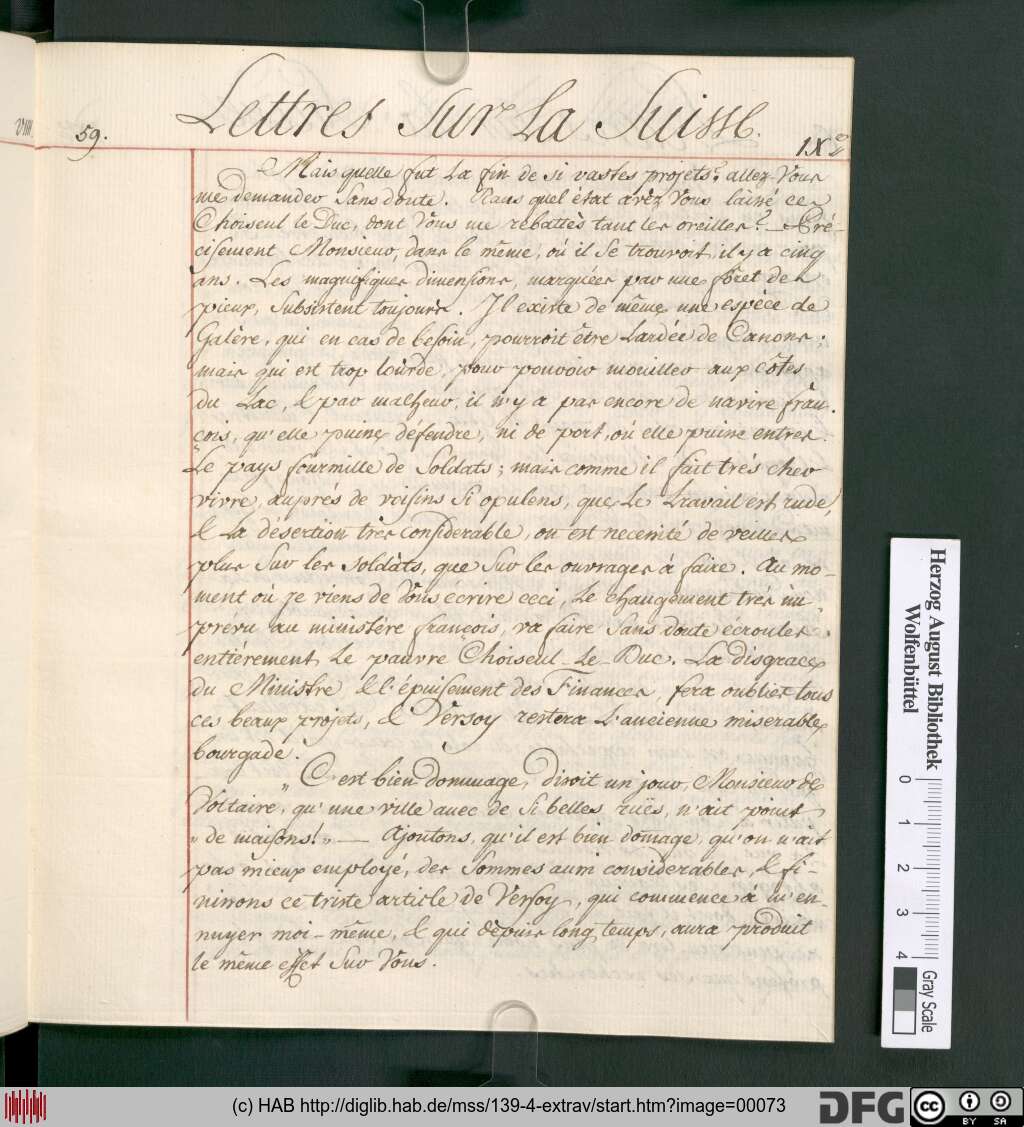 Lettres sur La Suisse.
59.
IXe
Mais quelle fut la fin de si vastes projets? allez-Vous
me demander sans doute. Dans quel état avéz Vous laissé ce
Choiseul le Duc, dont Vous me rebattès tant les oreilles? – Pré-
cisement Monsieur, dans le même, où il se trouvoit, il y a cinq
ans. Les magnifiques dimensions, marquées par une forêt de
pieux, subsistent toujours. Il existe de même une espèce de
Galère, qui en cas de besoin, pourroit être Lardée de Canons;
mais qui est trop lourde, pour pouvoir mouiller aux côtes
du Lac, & par malheur, il n'y a pas encore de navire fran-
çois, qu'elle puisse defendre, ni de port, où elle puisse entrer.
Le pays fourmille de Soldats; mais comme il fait trés cher
vivre, auprés de voisins si opulens, que Le travail est rude,
& La désertion très considerable, on est necessité de veiller
plus sur les soldâts, que sur les ouvrages à faire. Au mo-
ment où je viens de Vous écrire ceci, Le changement trés im-
prevu au ministère françois, va faire sans doute écrouler
entiérement Le pauvre Choiseul-Le-Duc. La disgrace
du Ministre, & l'épuisement des Finances, fera oublier tous
ces beaux projets, & Versoy restera L'ancienne miserable
bourgade.
„C'est bien dommage, disoit un jour, Monsieur de
Voltaire, „qu'une ville avec de si belles ruës, n'ait point
„de maisons!„ — Ajoutons, qu'il est bien domage, qu'on n'ait
pas mieux employé, des Sommes aussi considerables, & fi-
nissons ce triste article de Versoy, qui commence à m'en-
nuyer moi-même, & qui depuis long temps, aura produit
le même effet sur Vous.
Herzog August Bibliothek
Wolfenbüttel
0 1 2 3 4
Gray Scale
(c) HAB http://diglib.hab.de/mss/139-4-extrav/start.htm?image=00073
DFG
cc BY SA